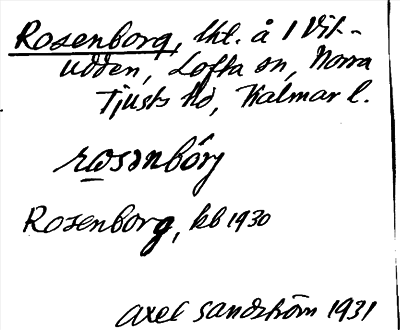 Rosenborg, lht. å 1 Vik-
udden, Lofta sn, Norra
Tjusts hd, Kalmar l.
rωsənbórj
Rosenborg, kb 1930
Axel Sandström 1931